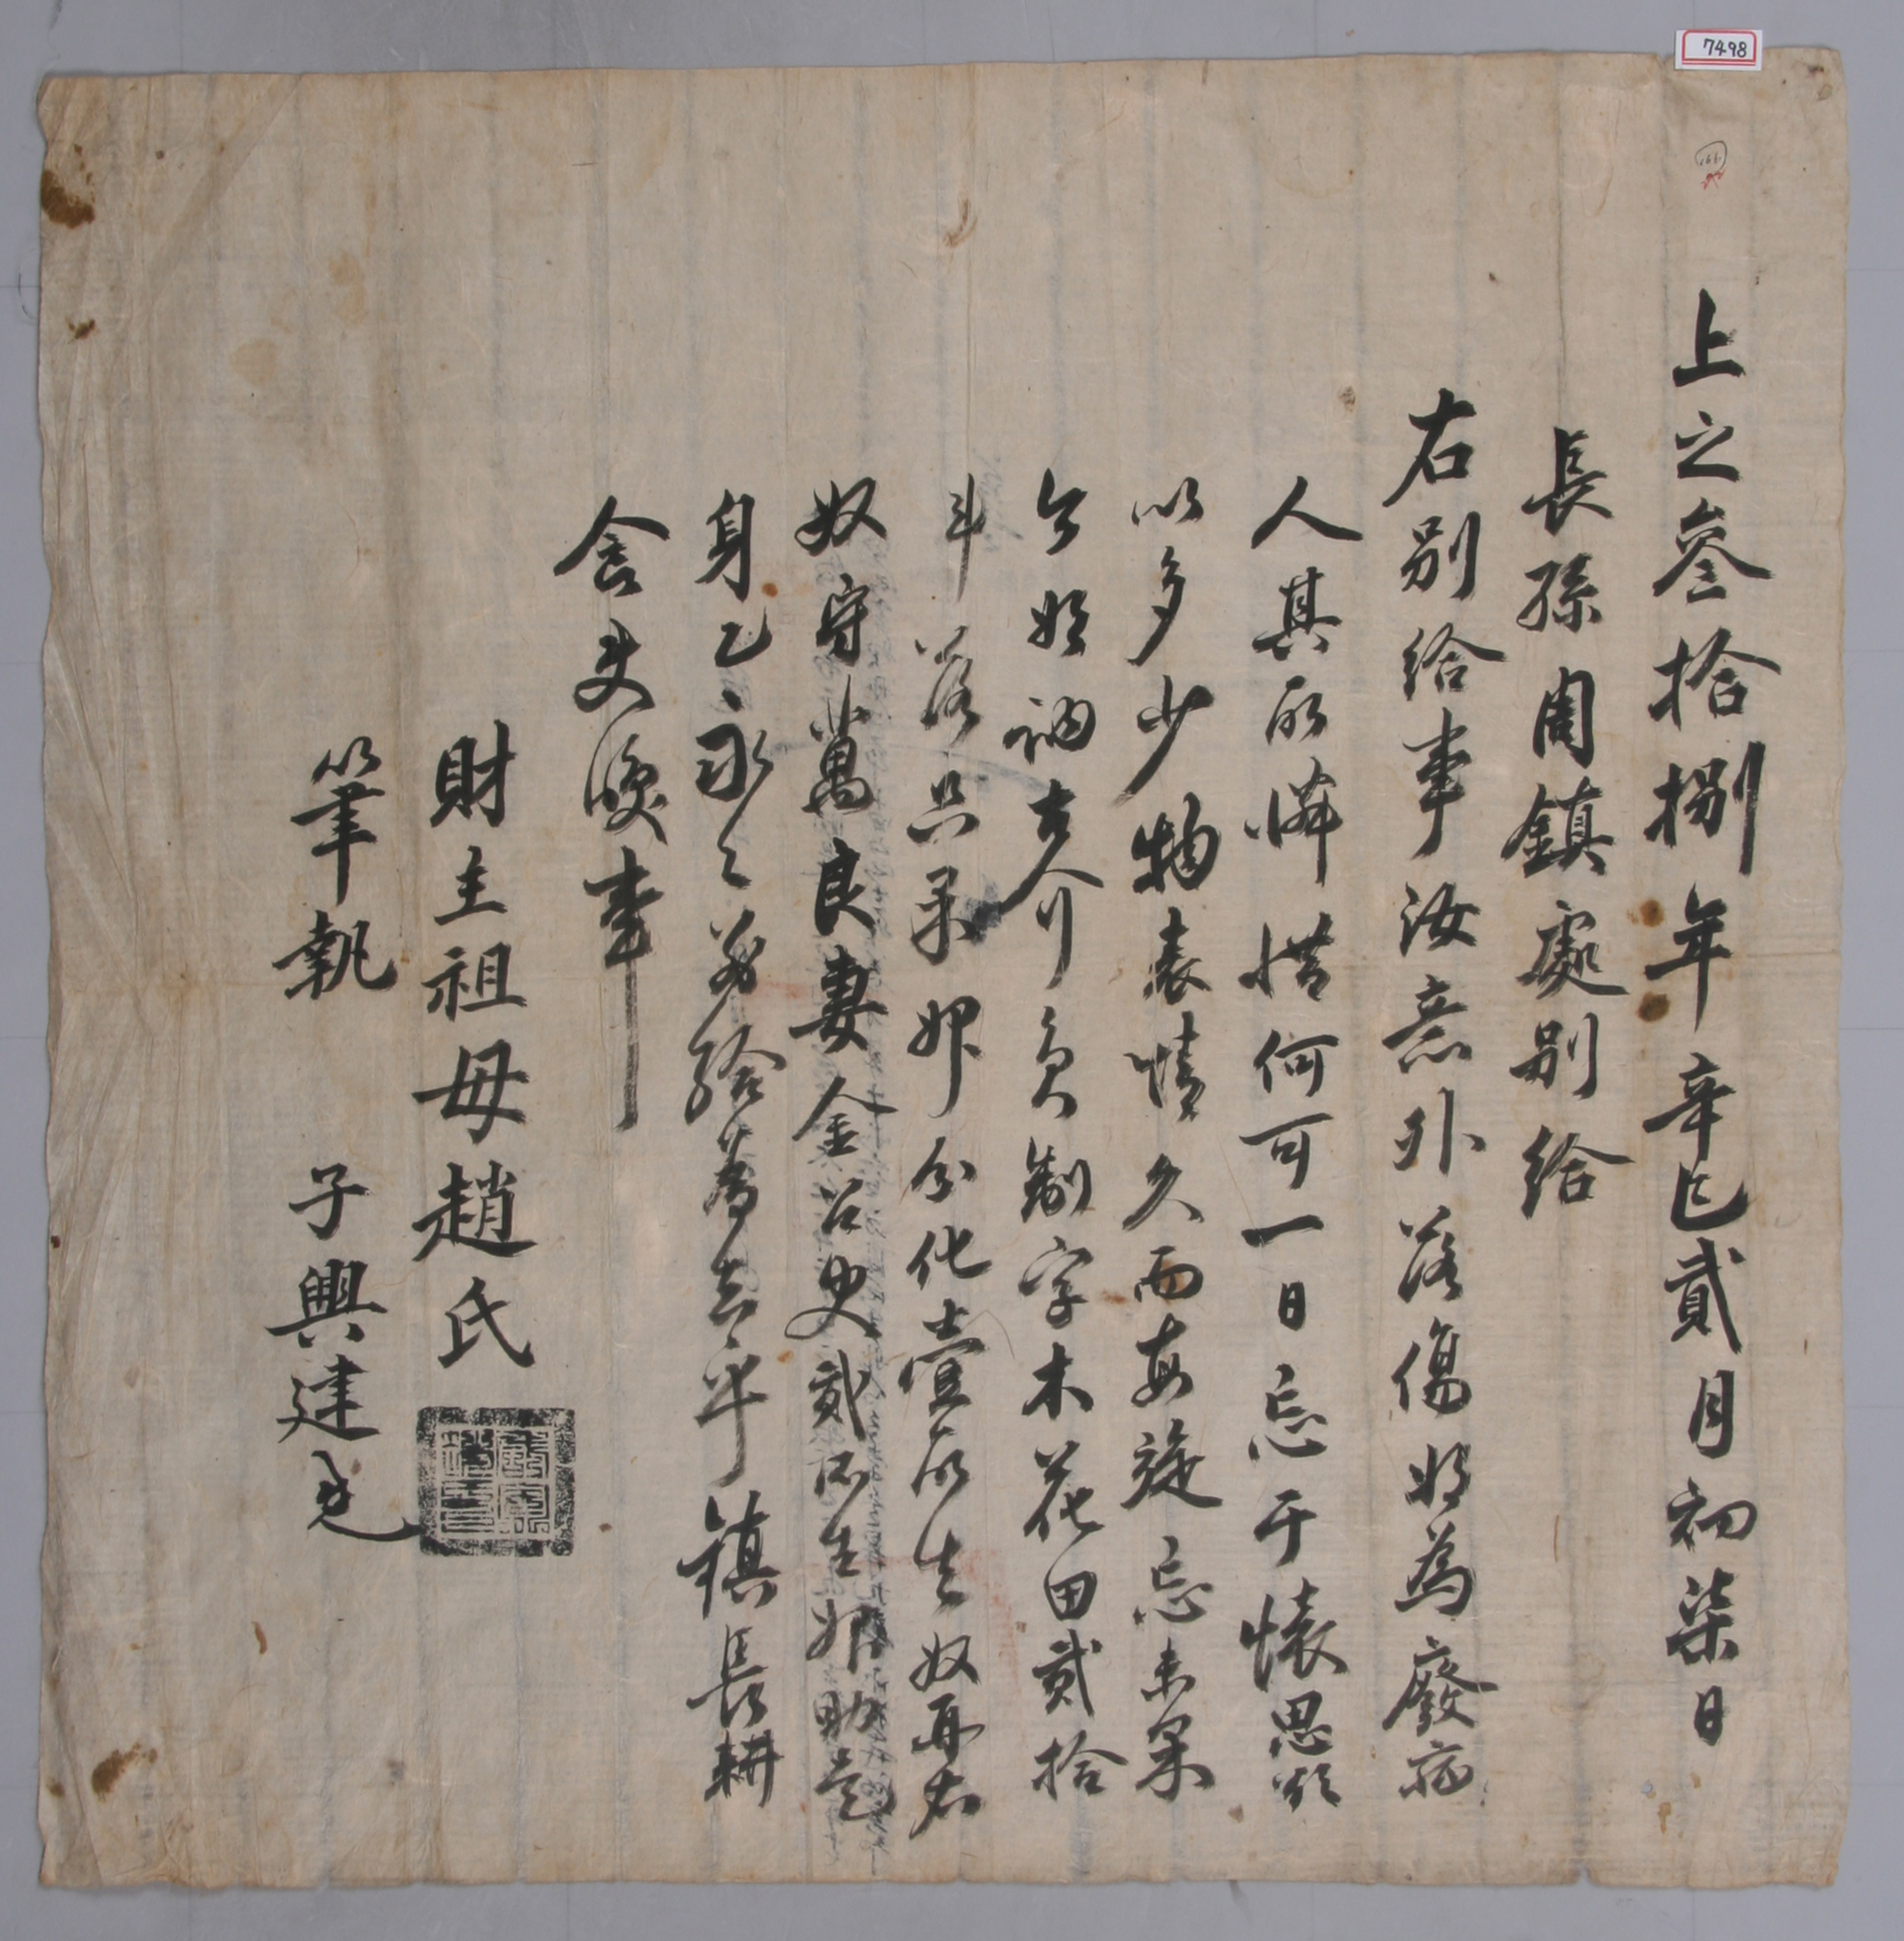 7498
上之叄拾捌年辛巳貳月初柒日
長孫周鎮處別給
右別給事汝意外落傷將爲廢病
人其所憐惜何可一日忘于懷思欲
以多少物表情久而每旋忘未果
今始 介員制字木花田貳拾
斗落只果婢分化壹所生奴再右
奴守萬良妻金召史貳所生婢助是
身乙永〻別給爲去乎鎮長耕
舍 後事
財主祖母趙氏
筆執 子興建